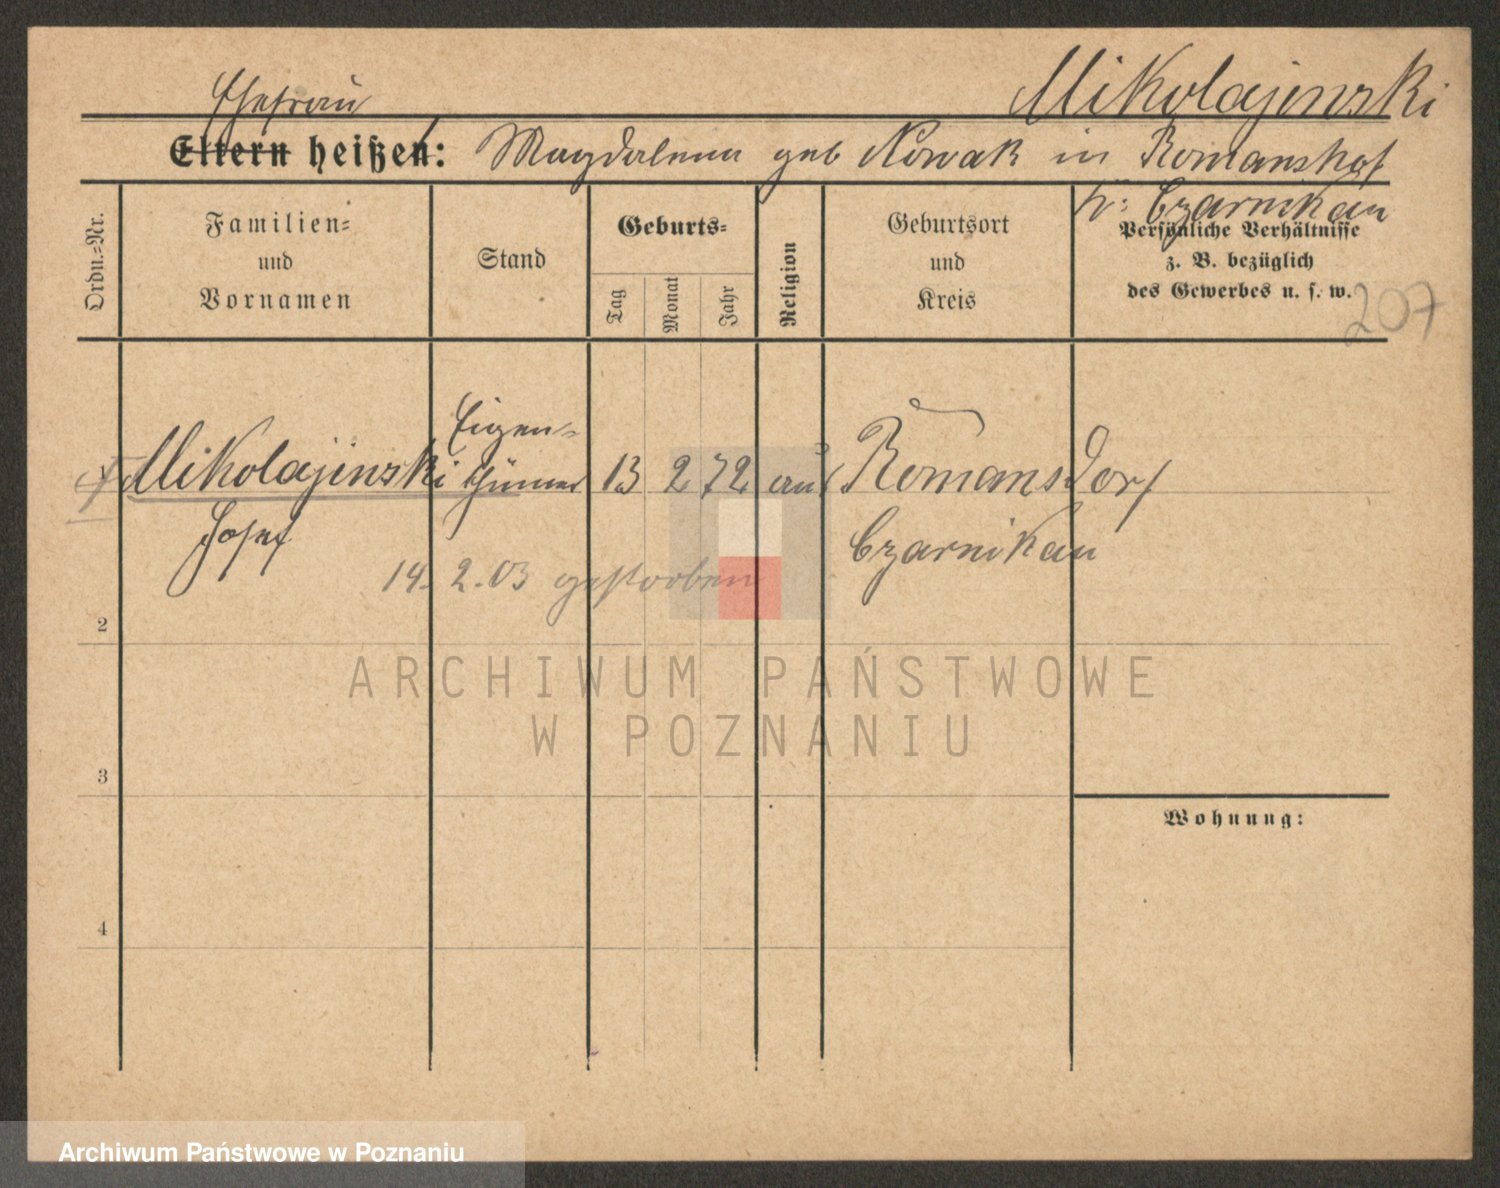 Mikolajewski
Ehefrau
Eltern heißen: Magdalena geb Nowak in Romanshof
Kr: Czarnikau
Ordn.-Nr.
Familien-
und
Vornamen
Stand
Geburts-
Tag
Monat
Jahr
Religion
Geburtsort
und
Kreis
Persönliche Verhältnisse
z. B. bezüglich
des Gewerbes u. s. w.
207
Mikolajewski
Josef
Eigen-
thümer
13 2 72
Romansdorf
Czarnikau
14. 2. 03 gestorben
2
3
4
Wohnung:
ARCHIWUM PAŃSTWOWE
W POZNANIU
Archiwum Państwowe w Poznaniu